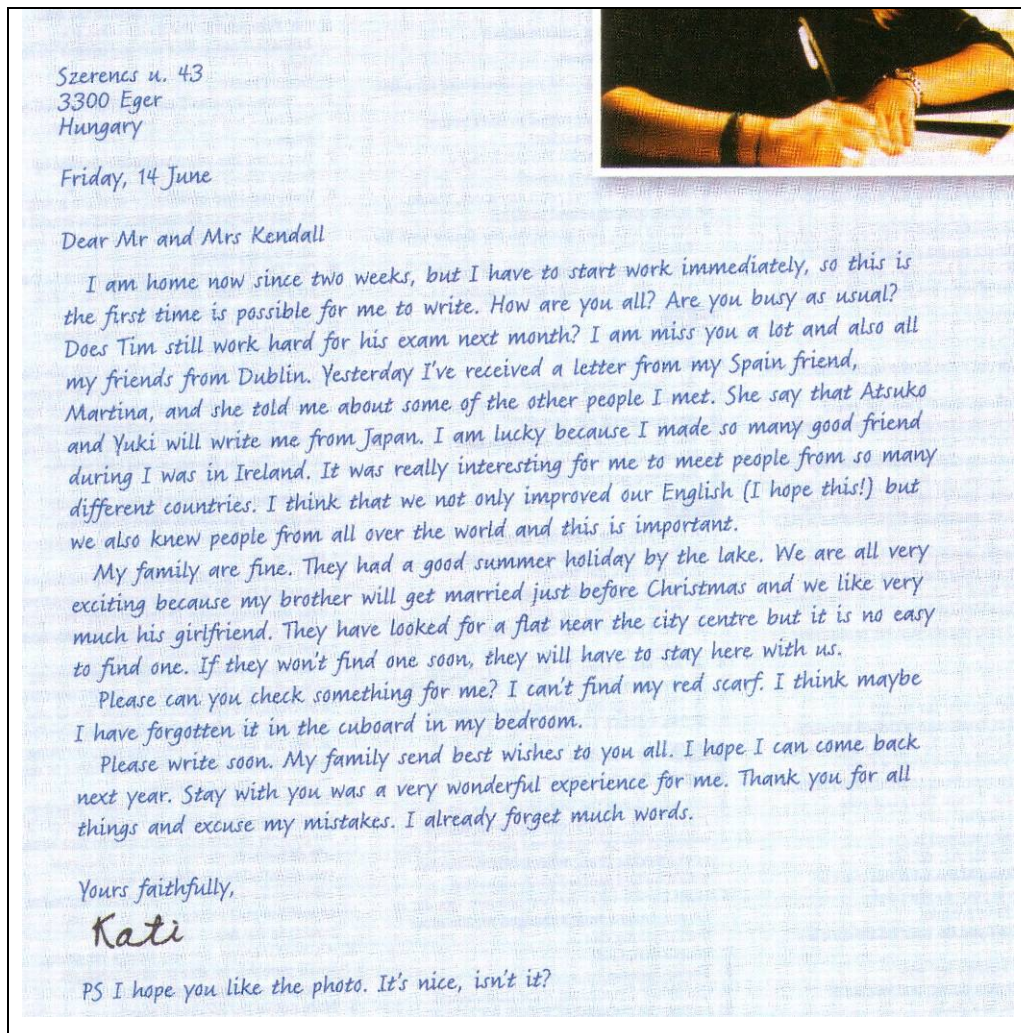 Szerencs u. 43
3300 Eger
Hungary
Friday, 14 June
Dear Mr and Mrs Kendall
I am home now since two weeks, but I have to start work immediately, so this is
the first time is possible for me to write. How are you all? Are you busy as usual?
Does Tim still work hard for his exam next month? I am miss you a lot and also all
my friends from Dublin. Yesterday I've received a letter from my Spain friend,
Martina, and she told me about some of the other people I met. She say that Atsuko
and Yuki will write me from Japan. I am lucky because I made so many good friend
during I was in Ireland. It was really interesting for me to meet people from so many
different countries. I think that we not only improved our English (I hope this!) but
we also knew people from all over the world and this is important.
My family are fine. They had a good summer holiday by the lake. We are all very
exciting because my brother will get married just before Christmas and we like very
much his girlfriend. They have looked for a flat near the city centre but it is no easy
to find one. If they won't find one soon, they will have to stay here with us.
Please can you check something for me? I can't find my red scarf. I think maybe
I have forgotten it in the cuboard in my bedroom.
Please write soon. My family send best wishes to you all. I hope I can come back
next year. Stay with you was a very wonderful experience for me. Thank you for all
things and excuse my mistakes. I already forget much words.
Yours faithfully,
Kati
PS I hope you like the photo. It's nice, isn't it?